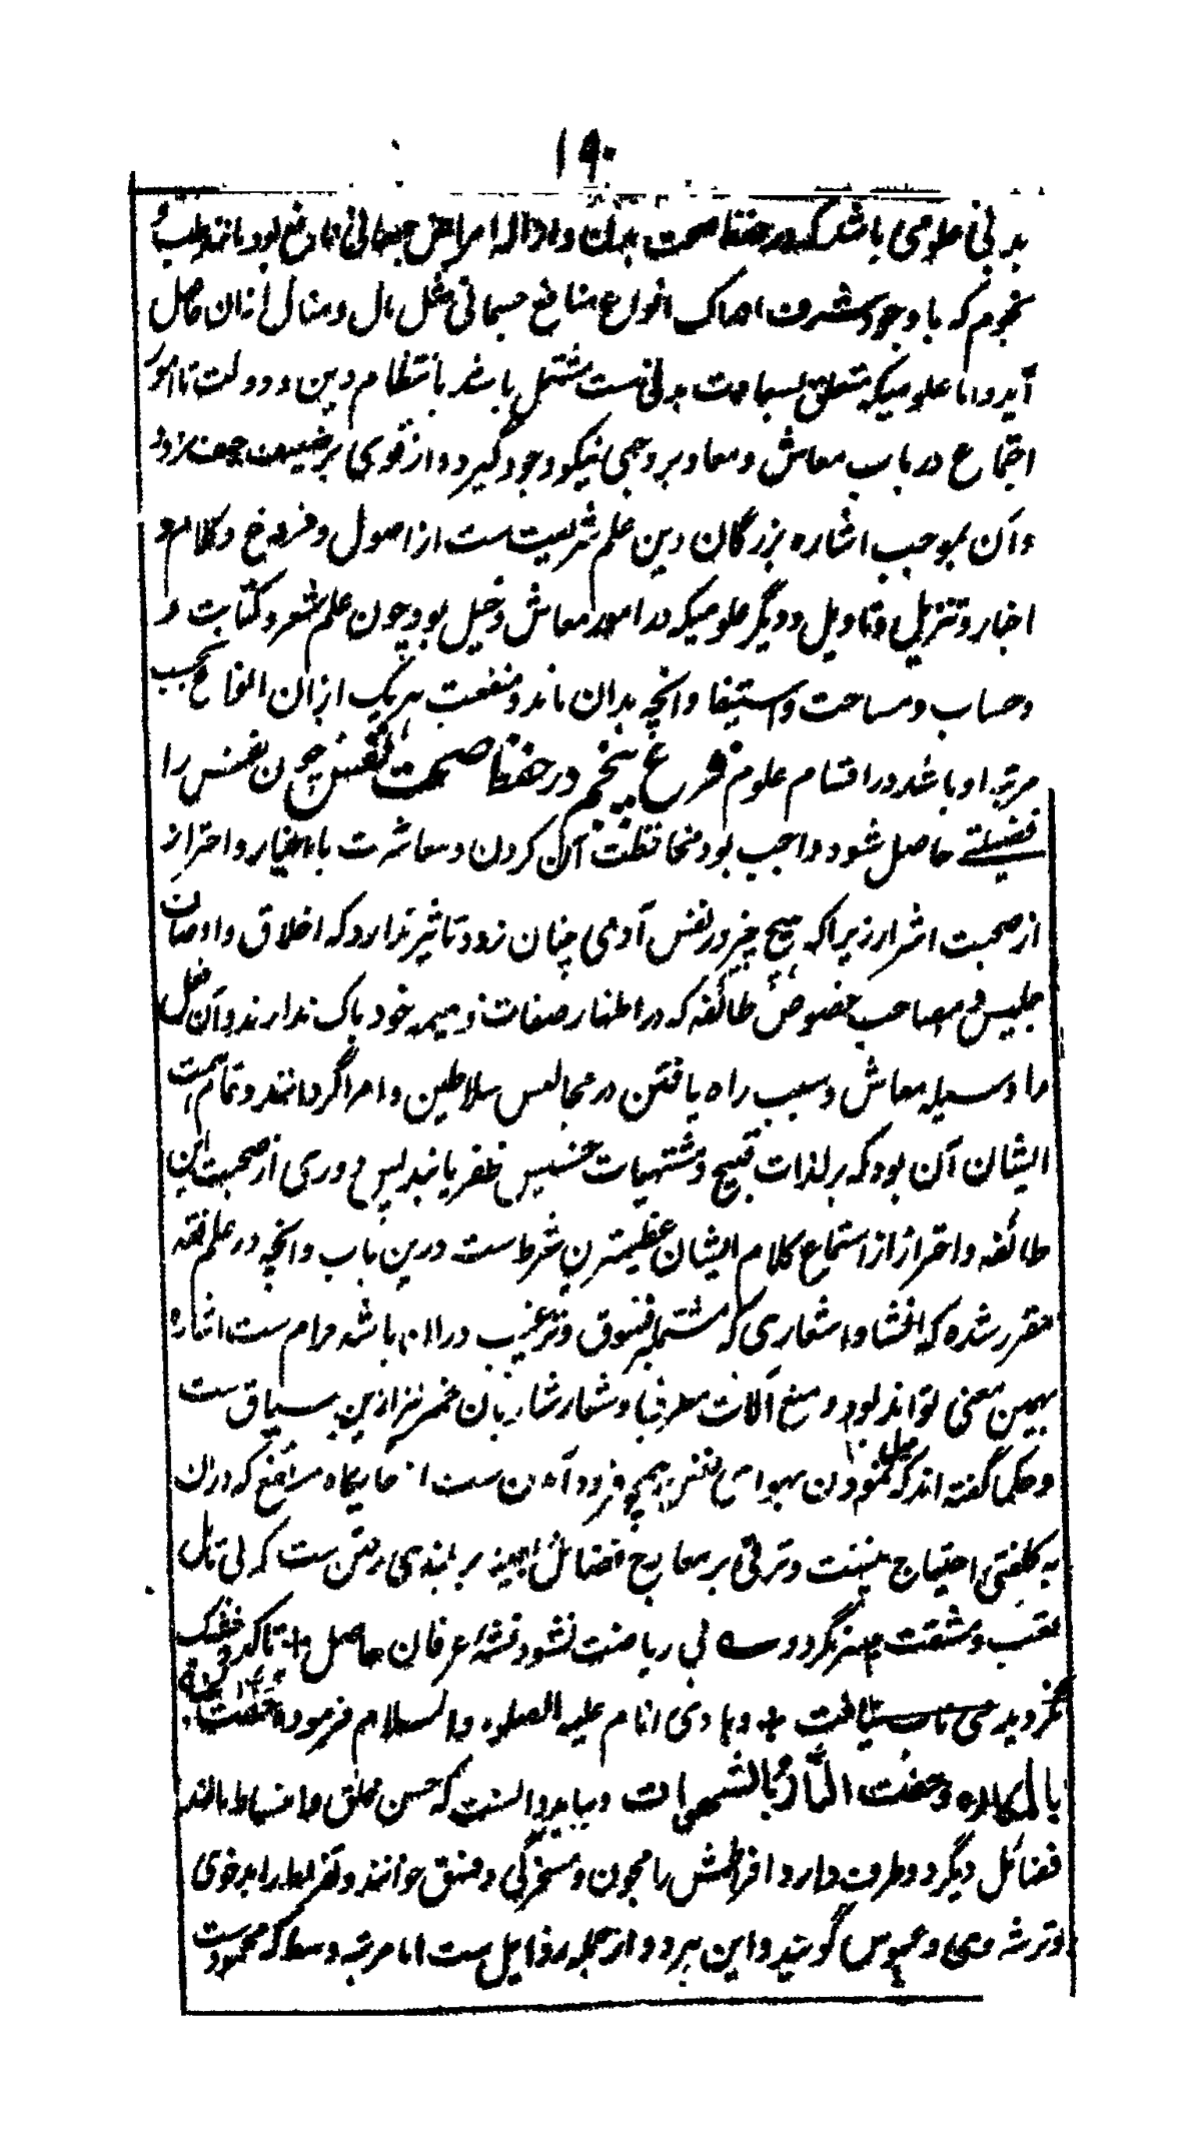 ۱۹۰
بدنی علومی باشد که در حفظ صحت بدن و ازاله امراض جسمانی نافع بود مانند طب و
نجوم که با وجود شرف ادراک انواع منافع جسمانی مثل مال و منال ازان حاصل
آید و اما علومیکه متعلق بسعادت بدنی ست مشتمل باشد بانتظام دین و دولت تا امور
اجتماع در باب معاش و معاد بر وجهی نیکو وجود گیرد و از قوی بر ضعیف نرود
و آن بموجب اشاره بزرگان دین علم شریعت ست از اصول و فروع و کلام و
اخبار و تنزیل و تاویل و دیگر علومیکه در امور معاش دخیل بود چون علم شعر و کتابت و
و حساب و مساحت و استیفا و انچه بدان ماند و منفعت هریک ازان انواع بحسب
مرتبه او باشد در اقسام علوم فرع پنجم در حفظ صحت نفس چون نفس را
فضیلتے حاصل شود واجب بود محافظت آن کردن و معاشرت باخیار و احتراز
از صحبت اشرار زیرا که هیچ چیز در نفس آدمی چنان زود تاثیر ندارد که اخلاق و اوصاف
جلیس و مصاحب خصوص طائفه که در اظهار صفات ذمیمه خود باک ندارند و آن فعل
را وسیله معاش و سبب راه یافتن در مجالس سلاطین و امرا گردانند و تمام همت
ایشان آن بود که بر لذات قبیح و مشتهیات خسیس ظفر یابند پس دوری از صحبت این
طائفه و احتراز از استماع کلام ایشان عظیمترین شرط ست درین باب و انچه در علم فقه
مقرر شده که انشاد اشعاری که مشتملبر فسوق و ترغیب دران باشد حرام ست اشاره
بهمین معنی تواند بود و منع آلات مطربها و شعار شاربان خمر نیز ازین سیاق ست
و حکما گفته اند که میل نمودن بهواے نفس همچو فرود آمدن ست از جایگاه مرتفع که دران
به کلفتی احتیاج نیست و ترقی بر معارج فضائل همچو بر بلندی رفتن ست که بی تامل
تعب و مشقت میسر نگردد وسه بی ریاضت نشود نشهٔ عرفان حاصل ؞ تا کدو خشک
نگردید می ناب نیافت ؞ و هادی انام علیه الصلوه والسلام فرموده حفت الجنة
بالمکاره و حفت النار بالشهوات و بباید دانست که حسن خلق و انبساط مانند
فضائل دیگر دو طرف دارد افراطش را مجون و مسخرگی و فسق خوانند و تفریط را بدخوی
و ترشروی و عبوس گویند و این هر دو از جمله رذایل ست اما مرتبه وسط که محمودست